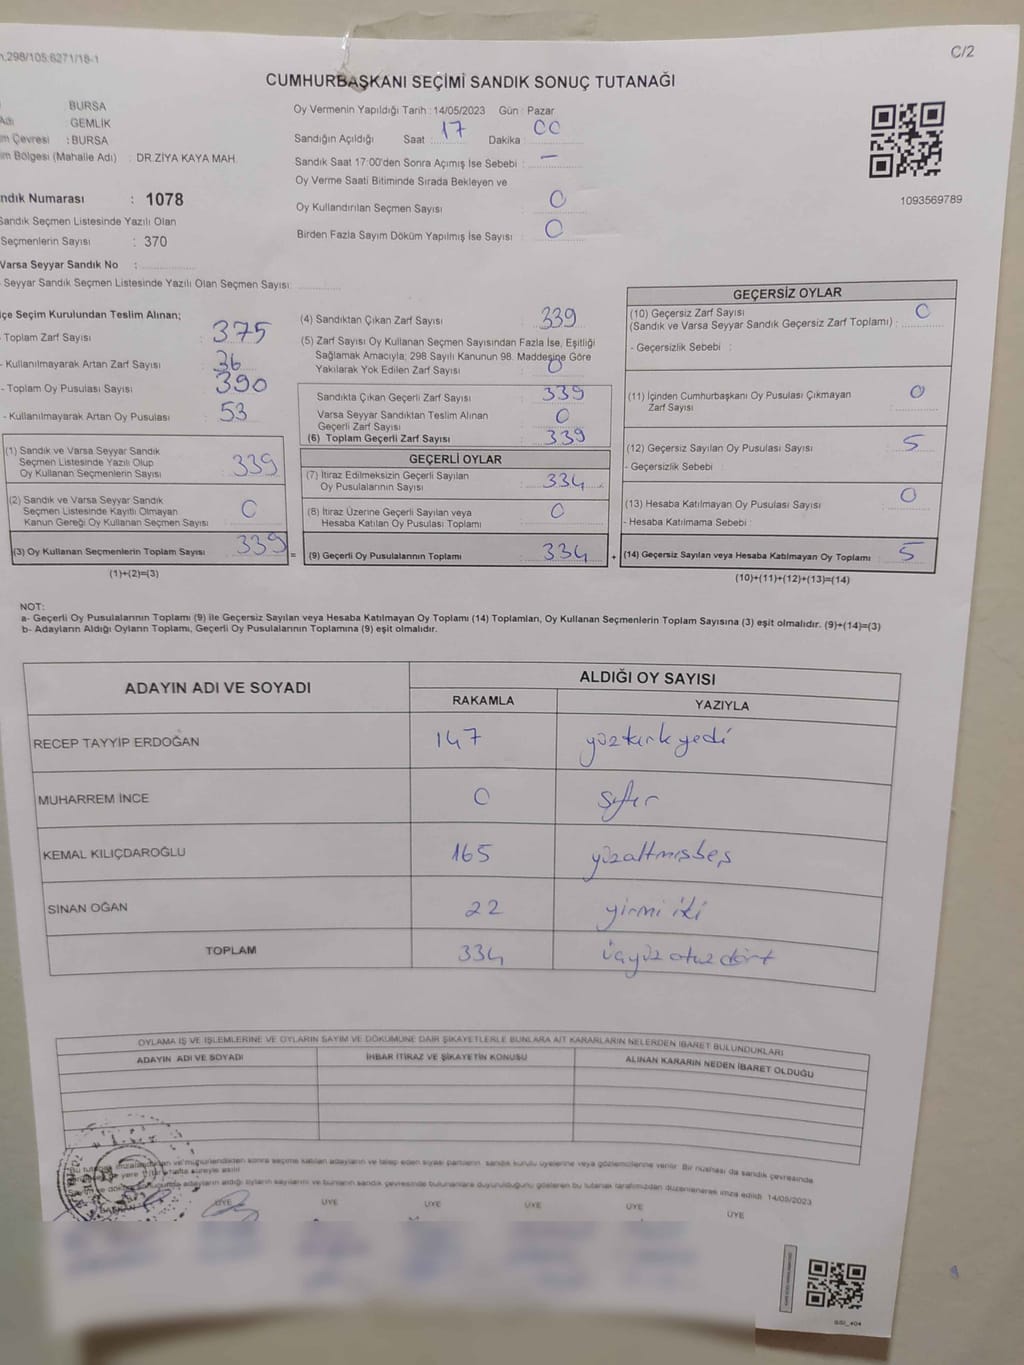 .298/105:6271/18-1
C/2
CUMHURBAŞKANI SEÇİMİ SANDIK SONUÇ TUTANAĞI
: BURSA
Adı : GEMLİK
m Çevresi : BURSA
im Bölgesi (Mahalle Adı) : DR.ZİYA KAYA MAH.
ndık Numarası : 1078
Sandık Seçmen Listesinde Yazılı Olan
Seçmenlerin Sayısı : 370
Varsa Seyyar Sandık No :
Seyyar Sandık Seçmen Listesinde Yazılı Olan Seçmen Sayısı:
Oy Vermenin Yapıldığı Tarih : 14/05/2023 Gün : Pazar
Sandığın Açıldığı Saat : 17 Dakika : 00
Sandık Saat 17:00'den Sonra Açımış İse Sebebi : —
Oy Verme Saati Bitiminde Sırada Bekleyen ve
Oy Kullandırılan Seçmen Sayısı : 0
Birden Fazla Sayım Döküm Yapılmış İse Sayısı : 0
1093569789
çe Seçim Kurulundan Teslim Alınan;
Toplam Zarf Sayısı : 375
- Kullanılmayarak Artan Zarf Sayısı : 36
- Toplam Oy Pusulası Sayısı : 390
- Kullanılmayarak Artan Oy Pusulası : 53
(1) Sandık ve Varsa Seyyar Sandık
Seçmen Listesinde Yazılı Olup
Oy Kullanan Seçmenlerin Sayısı : 339
(2) Sandık ve Varsa Seyyar Sandık
Seçmen Listesinde Kayıtlı Olmayan
Kanun Gereği Oy Kullanan Seçmen Sayısı : 0
(3) Oy Kullanan Seçmenlerin Toplam Sayısı : 339 =
(1)+(2)=(3)
(4) Sandıktan Çıkan Zarf Sayısı : 339
(5) Zarf Sayısı Oy Kullanan Seçmen Sayısından Fazla İse, Eşitliği
Sağlamak Amacıyla; 298 Sayılı Kanunun 98. Maddesine Göre
Yakılarak Yok Edilen Zarf Sayısı : 0
Sandıkta Çıkan Geçerli Zarf Sayısı : 339
Varsa Seyyar Sandıktan Teslim Alınan
Geçerli Zarf Sayısı : 0
(6) Toplam Geçerli Zarf Sayısı : 339
GEÇERLİ OYLAR
(7) İtiraz Edilmeksizin Geçerli Sayılan
Oy Pusulalarının Sayısı : 334
(8) İtiraz Üzerine Geçerli Sayılan veya
Hesaba Katılan Oy Pusulası Toplamı : 0
(9) Geçerli Oy Pusulalarının Toplamı : 334 +
GEÇERSİZ OYLAR
(10) Geçersiz Zarf Sayısı
(Sandık ve Varsa Seyyar Sandık Geçersiz Zarf Toplamı) : 0
- Geçersizlik Sebebi :
(11) İçinden Cumhurbaşkanı Oy Pusulası Çıkmayan
Zarf Sayısı : 0
(12) Geçersiz Sayılan Oy Pusulası Sayısı : 5
- Geçersizlik Sebebi :
(13) Hesaba Katılmayan Oy Pusulası Sayısı : 0
- Hesaba Katılmama Sebebi :
(14) Geçersiz Sayılan veya Hesaba Katılmayan Oy Toplamı : 5
(10)+(11)+(12)+(13)=(14)
NOT:
a- Geçerli Oy Pusulalarının Toplamı (9) ile Geçersiz Sayılan veya Hesaba Katılmayan Oy Toplamı (14) Toplamları, Oy Kullanan Seçmenlerin Toplam Sayısına (3) eşit olmalıdır. (9)+(14)=(3)
b- Adayların Aldığı Oyların Toplamı, Geçerli Oy Pusulalarının Toplamına (9) eşit olmalıdır.
ADAYIN ADI VE SOYADI
ALDIĞI OY SAYISI
RAKAMLA YAZIYLA
RECEP TAYYİP ERDOĞAN 147 yüzkırkyedi
MUHARREM İNCE 0 sıfır
KEMAL KILIÇDAROĞLU 165 yüzaltmışbeş
SİNAN OĞAN 22 yirmi iki
TOPLAM 334 üçyüz otuz dört
OYLAMA İŞ VE İŞLEMLERİNE VE OYLARIN SAYIM VE DÖKÜMÜNE DAİR ŞİKAYETLERLE BUNLARA AİT KARARLARIN NELERDEN İBARET BULUNDUKLARI
ADAYIN ADI VE SOYADI İHBAR İTİRAZ VE ŞİKAYETİN KONUSU ALINAN KARARIN NEDEN İBARET OLDUĞU
Bu tutanak imzalandıktan ve mühürlendikten sonra seçime katılan adayların ve talep eden siyasi partilerin sandık kurulu üyelerine veya gözlemcilerine verilir. Bir nüshası da sandık çevresinde
hafta süreyle asılır.
adayların aldığı oyların sayılarını ve bunların sandık çevresinde bulunanlara duyurulduğunu gösteren bu tutanak tarafımızdan düzenlenerek imza edildi. 14/05/2023
BAŞKAN ÜYE ÜYE ÜYE ÜYE ÜYE ÜYE